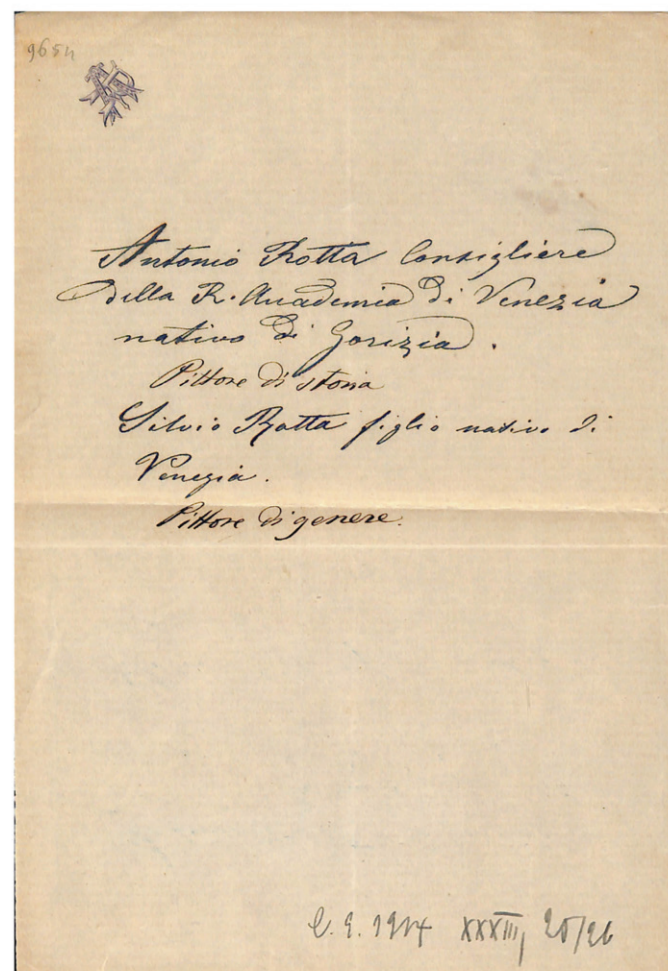 9654
AR
Antonio Rotta Consigliere
della R. Academia di Venezia
nativo di Gorizia.
Pittore di storia
Silvio Rotta figlio nativo di
Venezia.
Pittore di genere.
XXXIII,